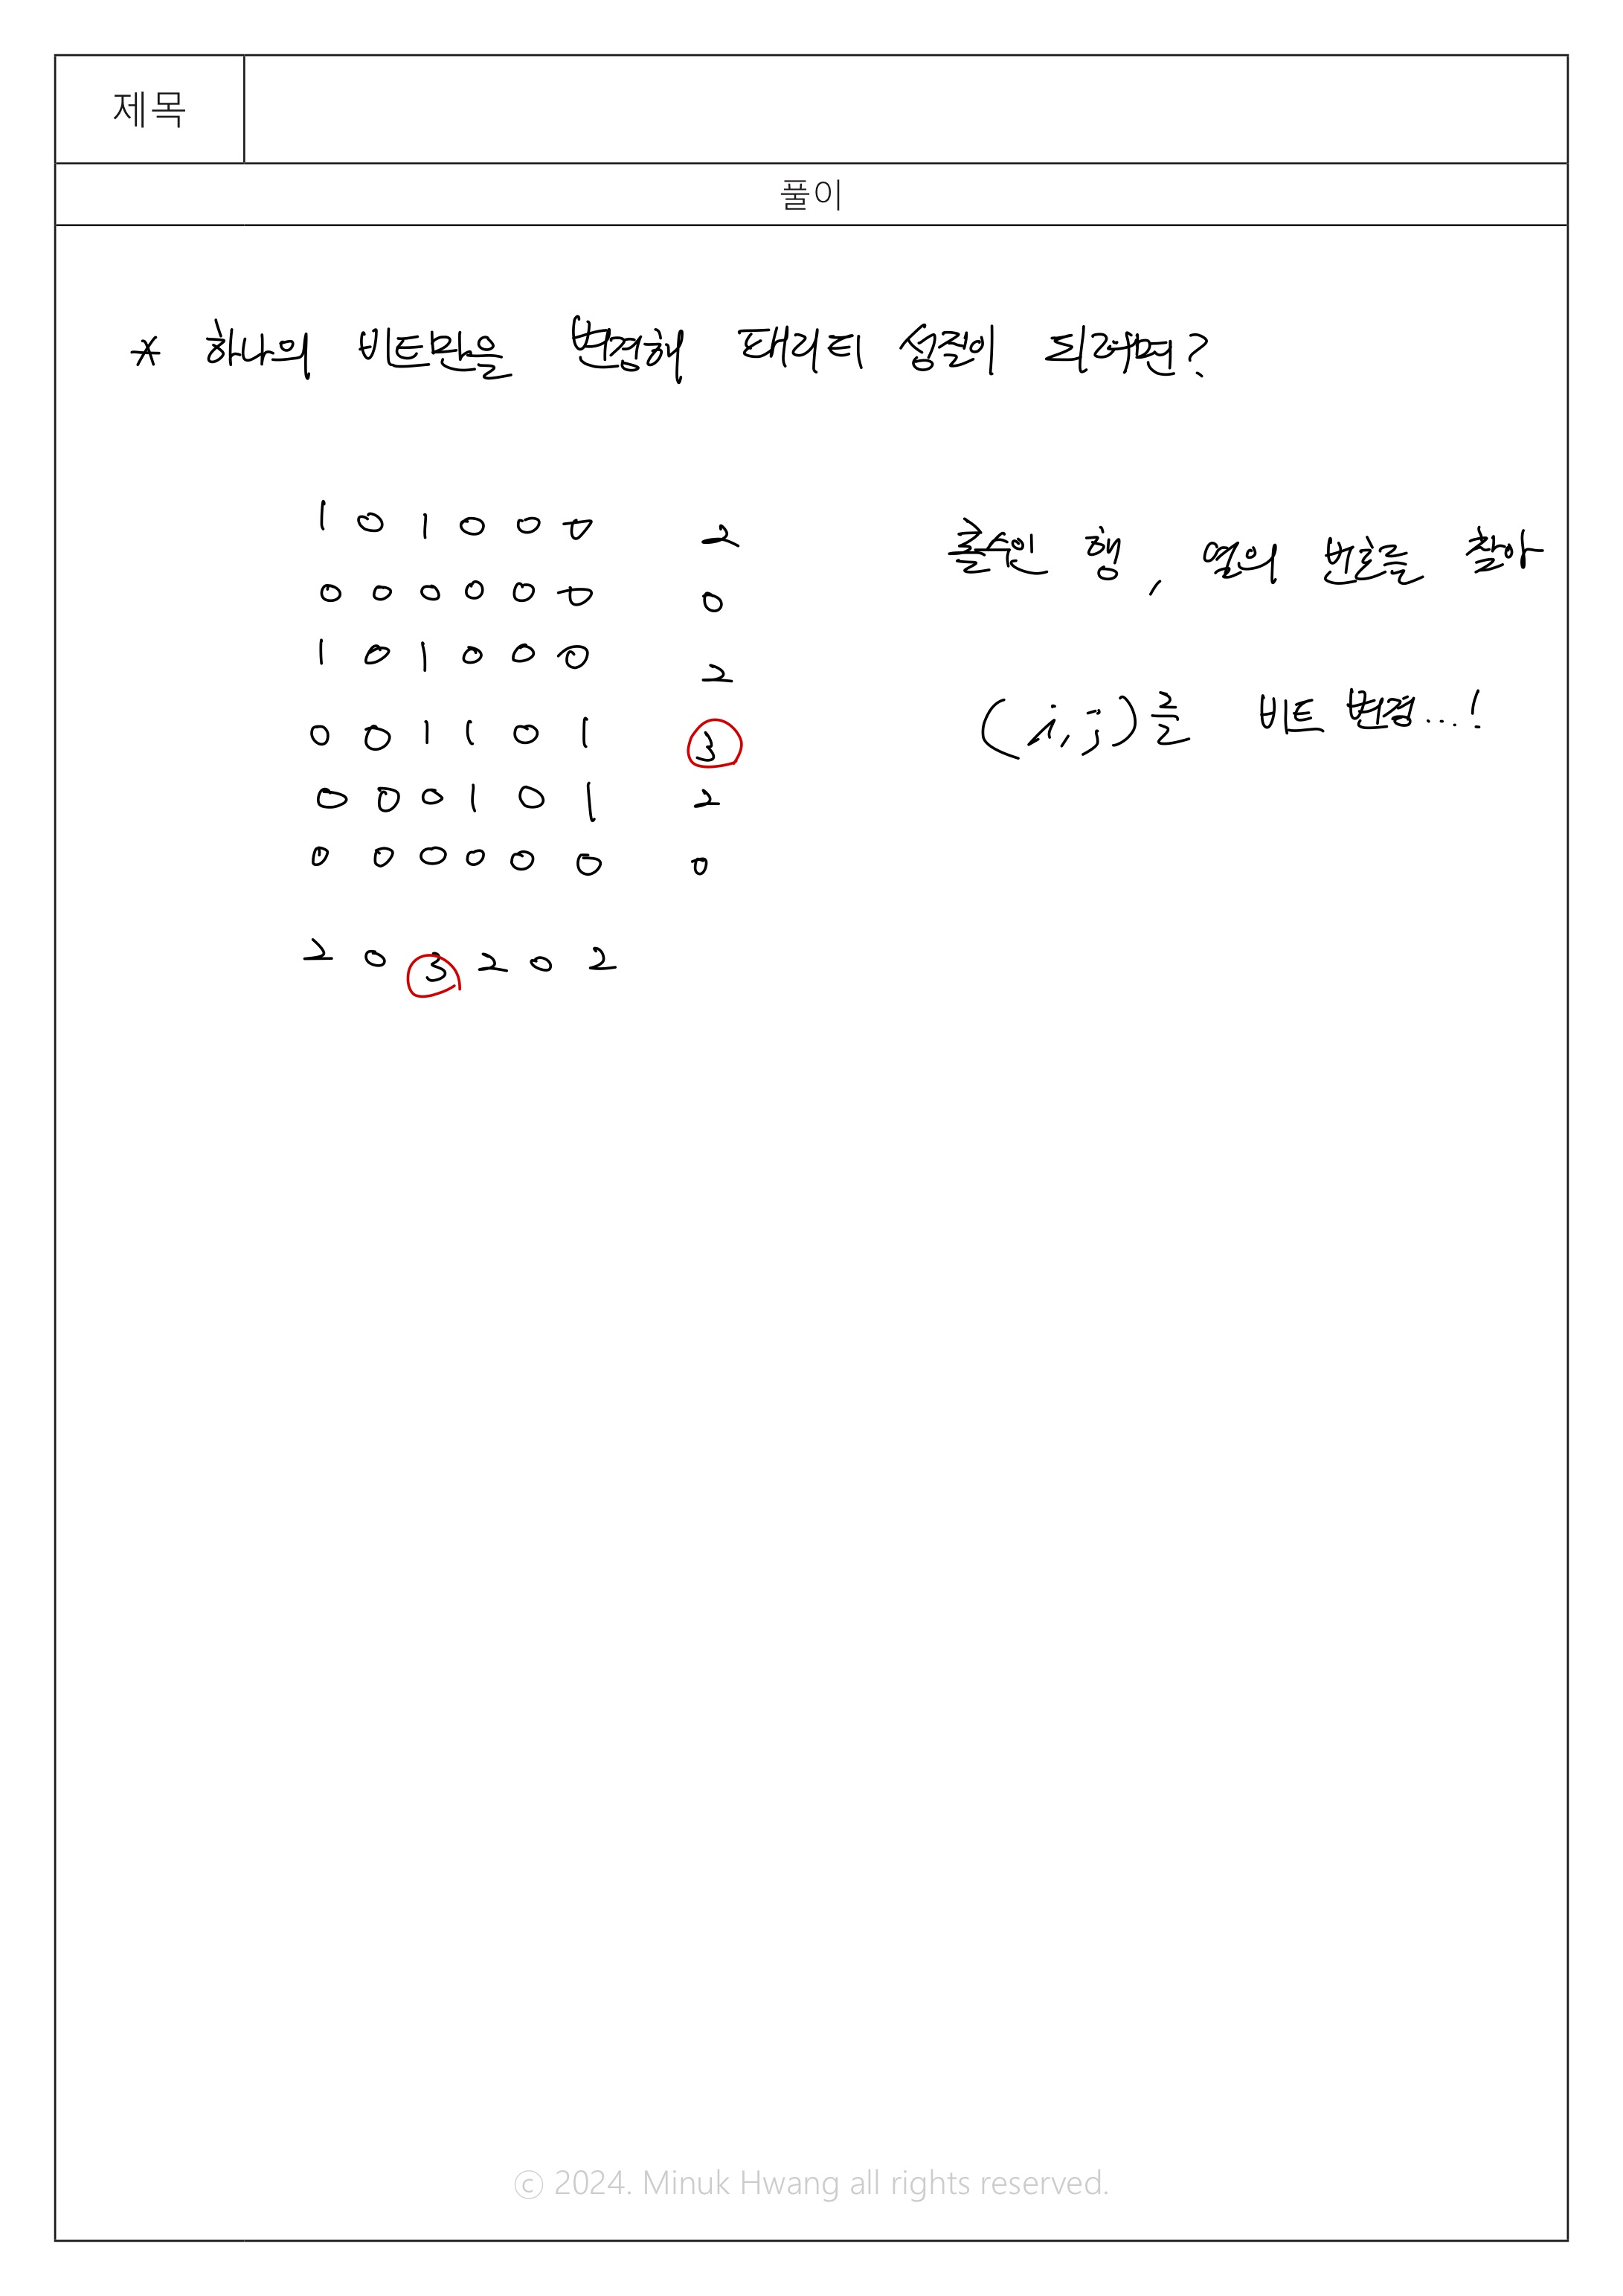 제목
풀이
* 하나의 비트만을 변경해 패리티 성질이 되려면?
1 0 1 0 0 0 2
0 0 0 0 0 0 0
1 0 1 0 0 0 2
0 0 1 1 0 1 3
0 0 0 1 0 1 2
0 0 0 0 0 0 0
2 0 3 2 0 2
홀수인 행, 열의 번호를 찾아
(i, j)를 비트 변경...!
© 2024. Minuk Hwang all rights reserved.